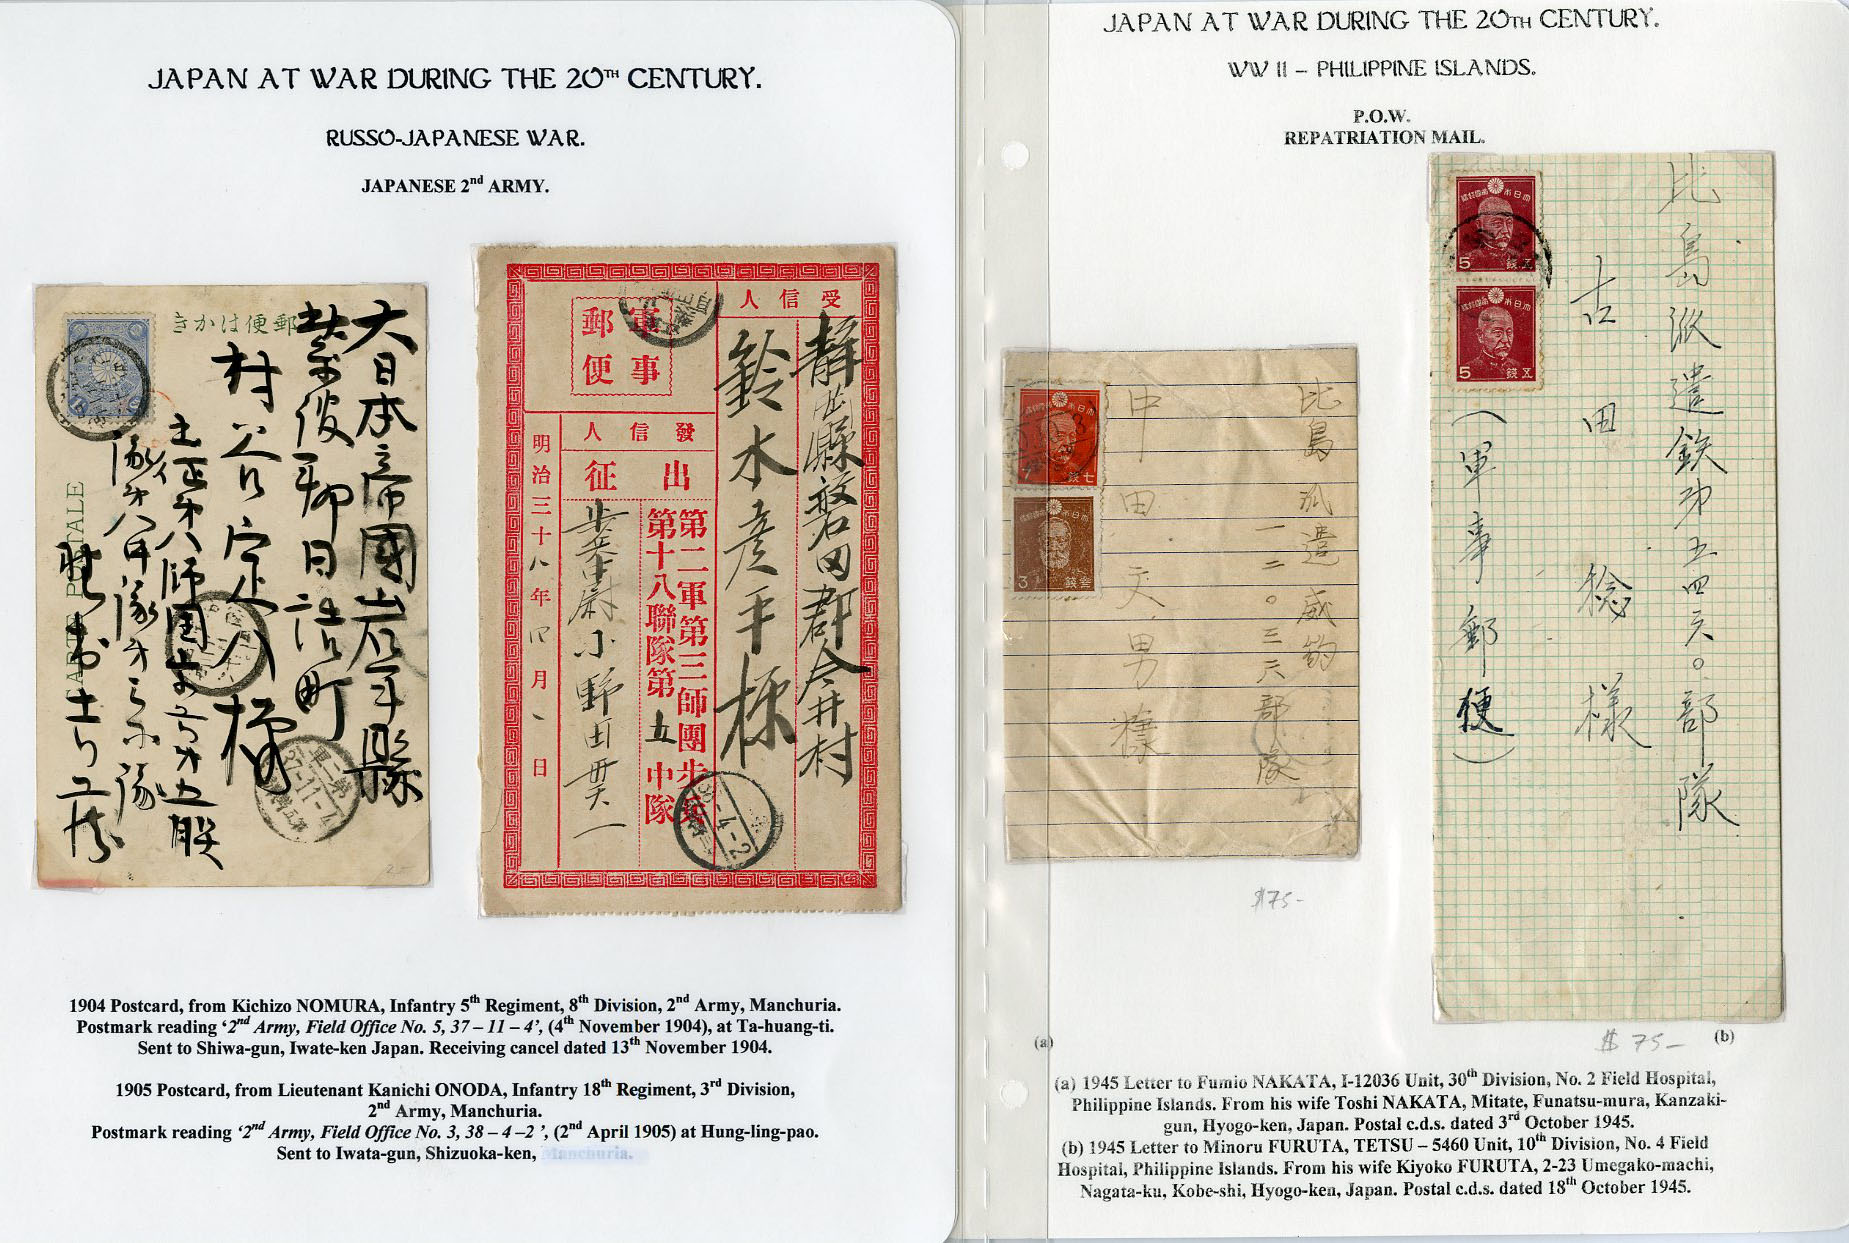 JAPAN AT WAR DURING THE 20TH CENTURY.
RUSSO-JAPANESE WAR.
JAPANESE 2nd ARMY.
郵便はかき
CARTE POSTALE
大日本帝國岩手縣
紫波郡日詰町
村谷定八様
第二軍
37-11-4
軍事
郵便
受信人
静岡縣磐田郡今井村
鈴木彦平様
發信人
出征
第二軍第三師團歩兵
第十八聯隊第五中隊
歩兵中尉小野田貫一
明治三十八年四月一日
38-4-2
1904 Postcard, from Kichizo NOMURA, Infantry 5th Regiment, 8th Division, 2nd Army, Manchuria.
Postmark reading ‘2nd Army, Field Office No. 5, 37 – 11 – 4’, (4th November 1904), at Ta-huang-ti.
Sent to Shiwa-gun, Iwate-ken Japan. Receiving cancel dated 13th November 1904.
1905 Postcard, from Lieutenant Kanichi ONODA, Infantry 18th Regiment, 3rd Division,
2nd Army, Manchuria.
Postmark reading ‘2nd Army, Field Office No. 3, 38 – 4 –2 ’, (2nd April 1905) at Hung-ling-pao.
Sent to Iwata-gun, Shizuoka-ken, Manchuria.
JAPAN AT WAR DURING THE 20TH CENTURY.
WW II – PHILIPPINE ISLANDS.
P.O.W.
REPATRIATION MAIL.
比島派遣威第
一二〇三六部隊
中田文男様
大日本帝国郵便
7
銭七
大日本帝国郵便
3
銭参
$75-
(a)
比島派遣鉄第五四六〇部隊
古田稔様
(軍事郵便)
大日本帝国郵便
5
銭五
大日本帝国郵便
5
銭五
$75-
(b)
(a) 1945 Letter to Fumio NAKATA, I-12036 Unit, 30th Division, No. 2 Field Hospital,
Philippine Islands. From his wife Toshi NAKATA, Mitate, Funatsu-mura, Kanzaki-
gun, Hyogo-ken, Japan. Postal c.d.s. dated 3rd October 1945.
(b) 1945 Letter to Minoru FURUTA, TETSU – 5460 Unit, 10th Division, No. 4 Field
Hospital, Philippine Islands. From his wife Kiyoko FURUTA, 2-23 Umegako-machi,
Nagata-ku, Kobe-shi, Hyogo-ken, Japan. Postal c.d.s. dated 18th October 1945.